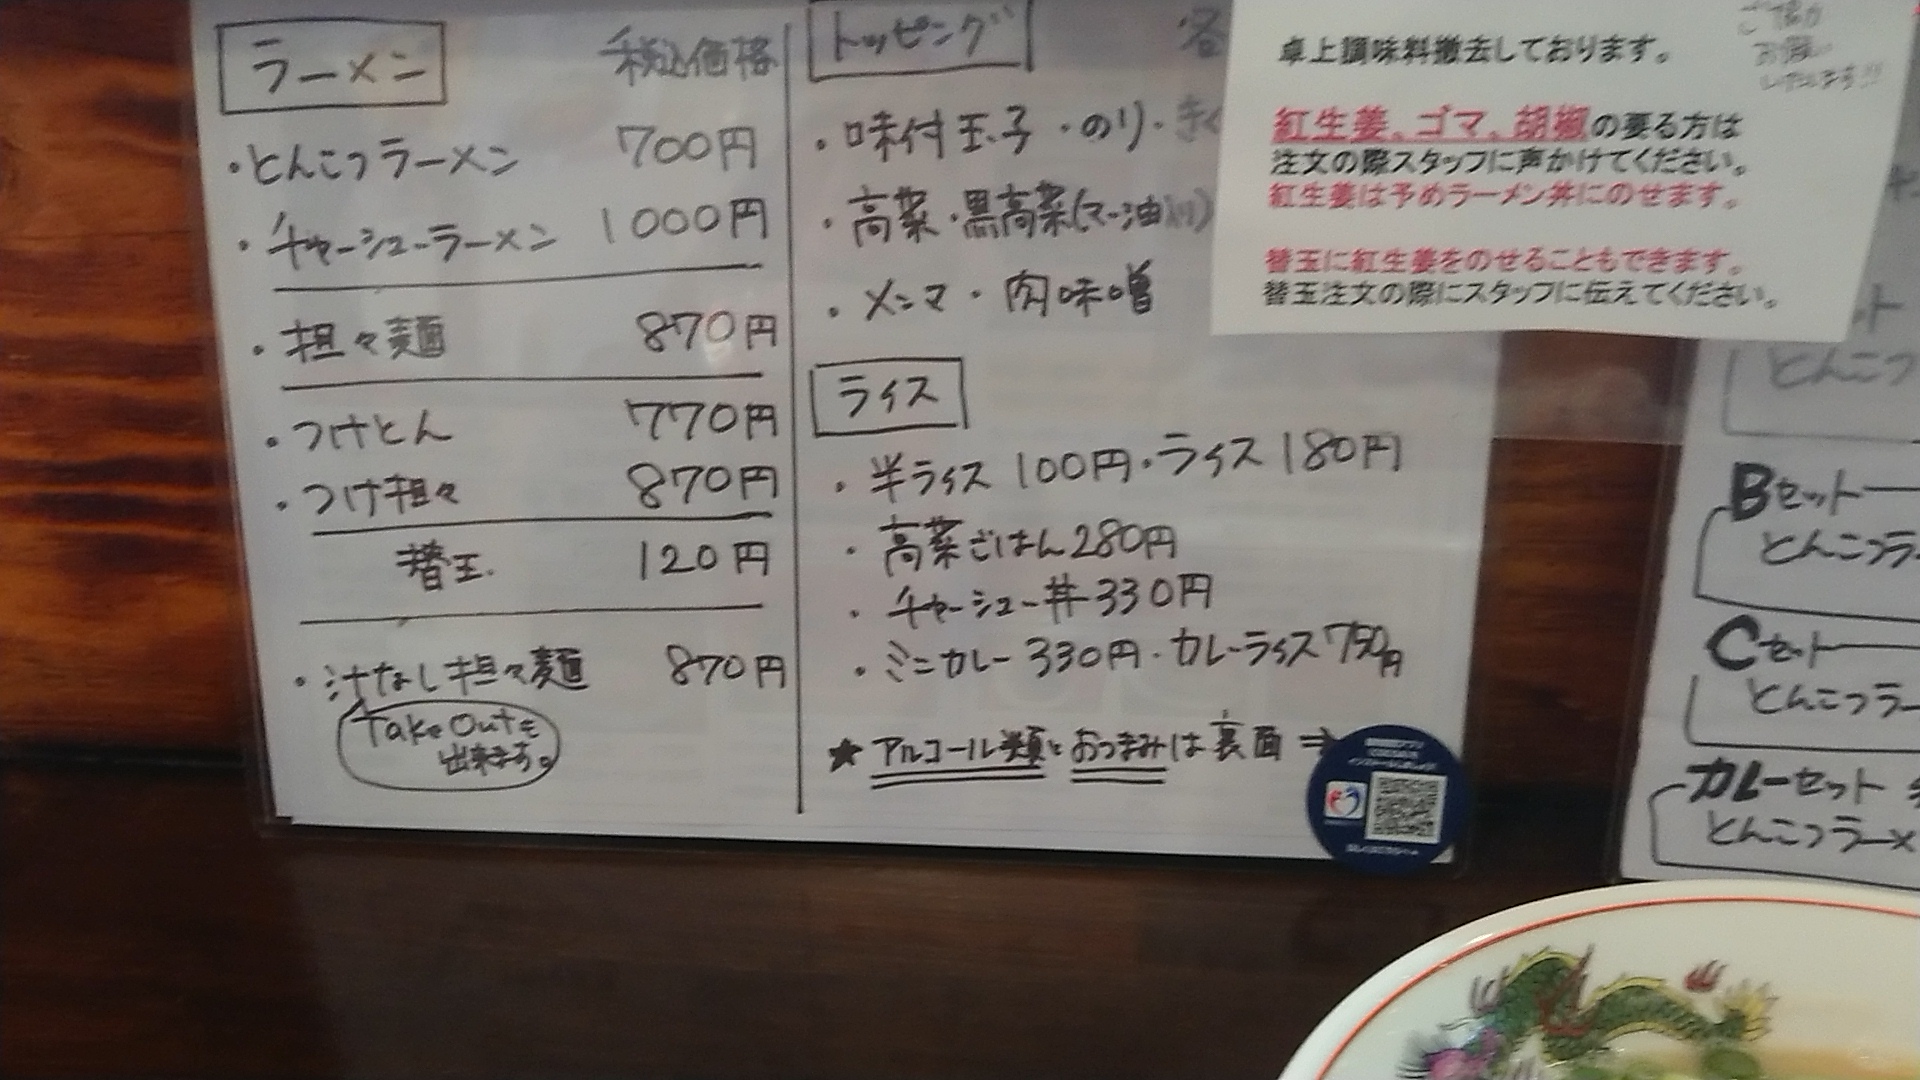 ラーメン 税込価格
・とんこつラーメン 700円
・チャーシューラーメン 1000円
・担々麺 870円
・つけとん 770円
・つけ担々 870円
替玉 120円
・汁なし担々麺 870円
Take Outも
出来ます。
トッピング 各
・味付玉子・のり・きく
・高菜・黒高菜(マー油入り)
・メンマ・肉味噌
ライス
・半ライス 100円・ライス 180円
・高菜ごはん 280円
・チャーシュー丼 330円
・ミニカレー 330円・カレーライス 750円
★アルコール類とおつまみは裏面⇒
卓上調味料撤去しております。
ご協力
お願い
いたします!!
紅生姜、ゴマ、胡椒の要る方は
注文の際スタッフに声かけてください。
紅生姜は予めラーメン丼にのせます。
替玉に紅生姜をのせることもできます。
替玉注文の際にスタッフに伝えてください。
ット
とんこつ
Bセット
とんこつラ
Cセット
とんこつラー
カレーセット
とんこつラーメ